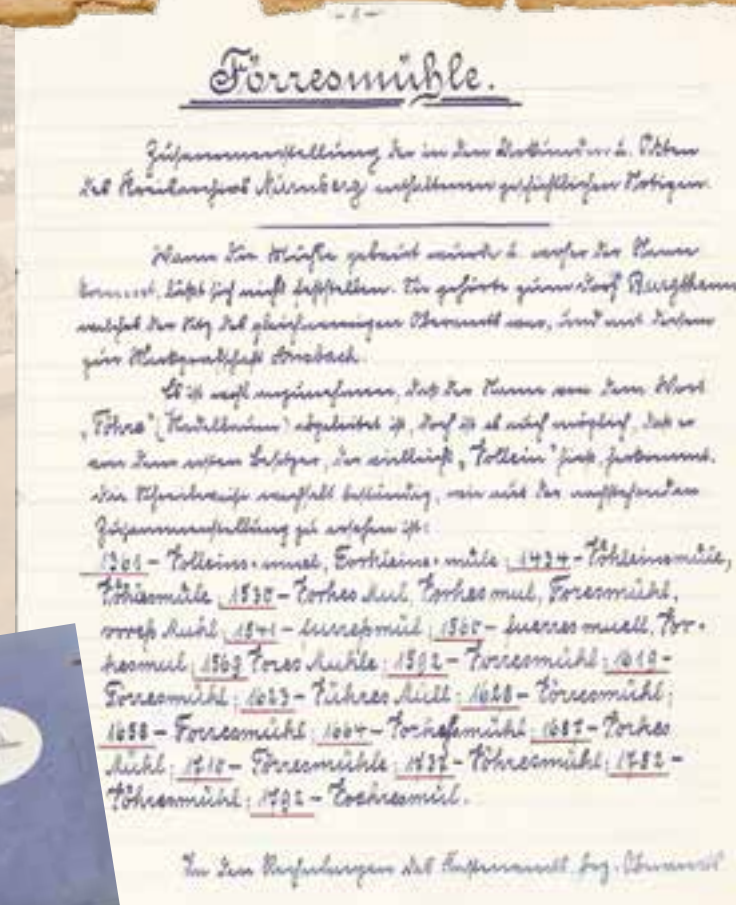 - 1 -
Förresmühle.
Zusammenstellung der in den Urkunden u. Akten
des Kreisarchivs Nürnberg enthaltenen geschichtlichen Notizen.
Wann die Mühle gebaut wurde u. woher der Name
kommt, läßt sich nicht feststellen. Sie gehörte zum Dorf Burgthann
welches der Sitz des gleichnamigen Oberamts war, und mit diesem
zur Markgrafschaft Ansbach.
Es ist wohl anzunehmen, daß der Name von dem Wort
"Föhre" (Nadelbaum) abgeleitet ist, doch ist es auch möglich, daß er
von dem ersten Besitzer, der vielleicht "Follein" hieß, herkommt.
Die Schreibweise wechselt beständig, wie aus der nachstehenden
Zusammenstellung zu ersehen ist:
1361 - Folleins-muel, Forhleins-müle; 1434 - Föhleinsmüle,
Föhlesmüle; 1530 - Forhes Mul, Forhes mul, Foresmühl,
voreß Muhl; 1541 - furreßmül; 1560 - fuerres muell, For-
hesmul; 1569 Fores Muhle; 1592 - Forresmühl; 1619 -
Forresmühl; 1623 - Führes Müll; 1628 - Förresmühl;
1658 - Forresmühl; 1664 - Forheßmühl; 1687 - Forhes
Mühl; 1710 - Förresmühle; 1737 - Föhresmühl; 1782 -
Föhresmühl; 1792 - Foehresmül.
In den Rechnungen des Kastenamts bez. Oberamts